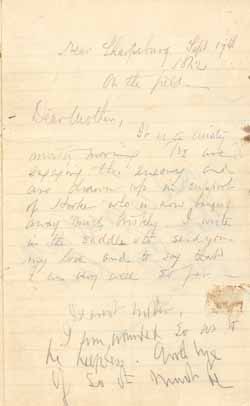 Near Sharpsburg Sept 17th
1862
On the field
Dear Mother,
It is a misty
misty morning we are
engaging the enemy and
are drawn up in support
of Hooker who is now banging
away most briskly. I write
in the saddle to send you
my love and to say that
I am very well so far
Dearest mother,
I am wounded so as to
be helpless. Good bye
if so it must be